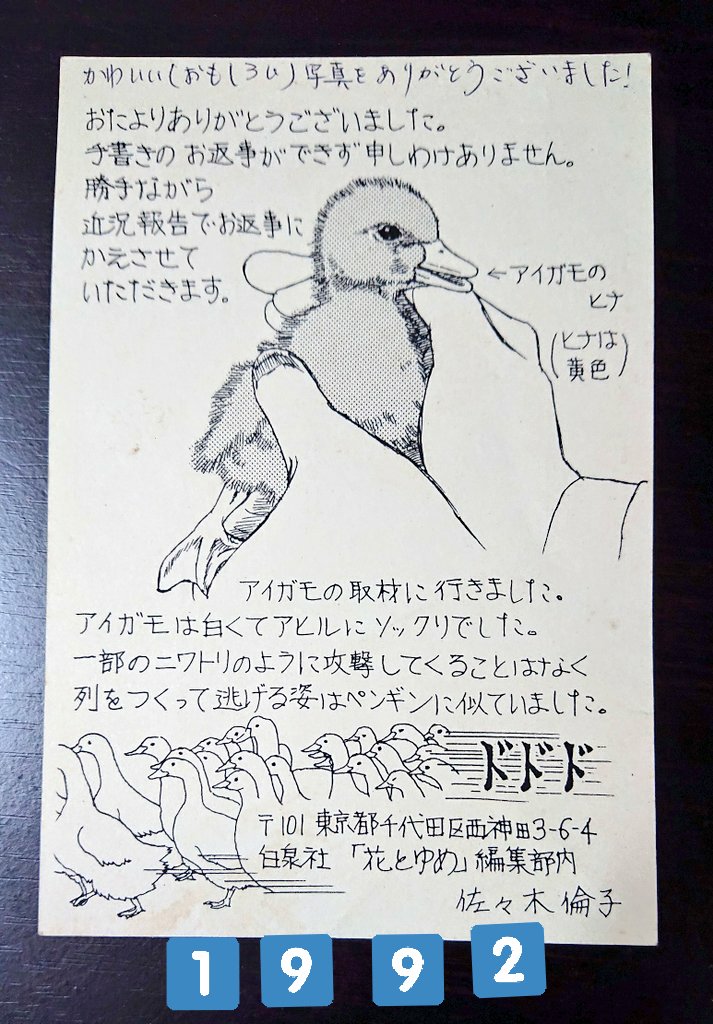 かわいい(おもしろい)写真をありがとうございました!
おたよりありがとうございました。
手書きのお返事ができず申しわけありません。
勝手ながら
近況報告でお返事に
かえさせて
いただきます。
←アイガモの
ヒナ
(ヒナは
黄色)
アイガモの取材に行きました。
アイガモは白くてアヒルにソックリでした。
一部のニワトリのように攻撃してくることはなく
列をつくって逃げる姿はペンギンに似ていました。
ドドド
〒101 東京都千代田区西神田3-6-4
白泉社 「花とゆめ」編集部内
佐々木倫子
1992